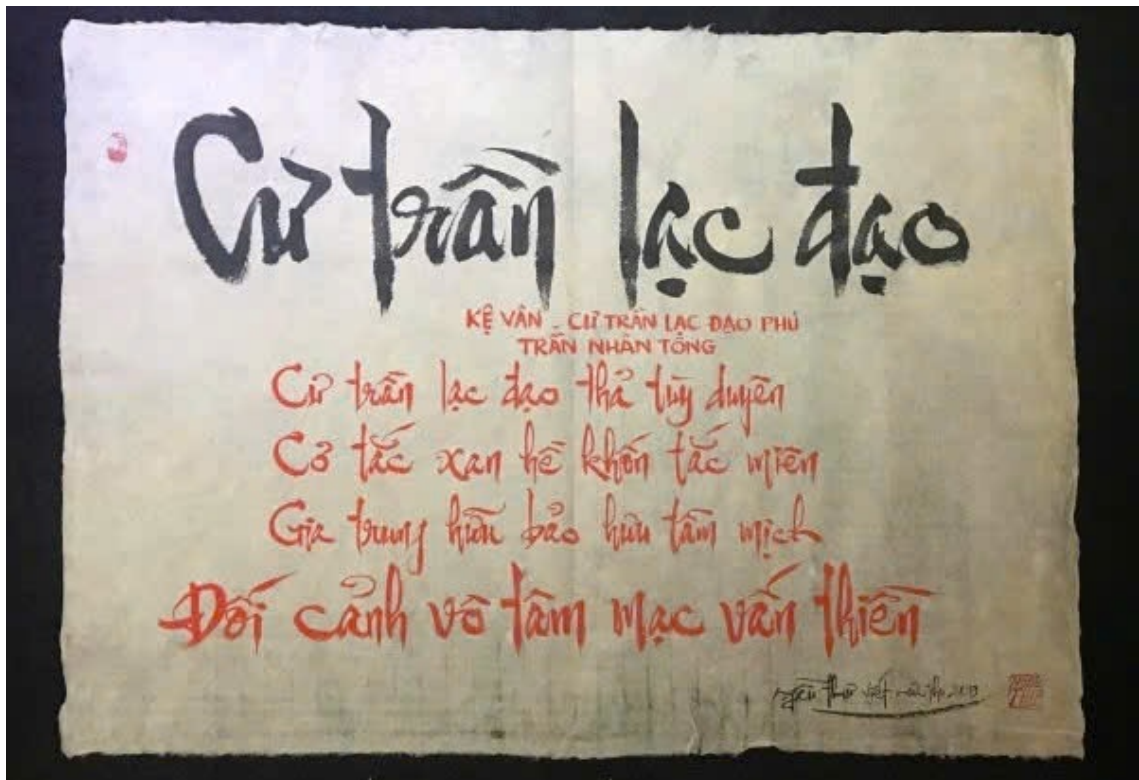 Cư trần lạc đạo
KỆ VÂN - CƯ TRẦN LẠC ĐẠO PHÚ
TRẦN NHÂN TÔNG
Cư trần lạc đạo thả tùy duyên
Cơ tắc xan hề khốn tắc miên
Gia trung hữu bảo hưu tầm mịch
Đối cảnh vô tâm mạc vấn thiền